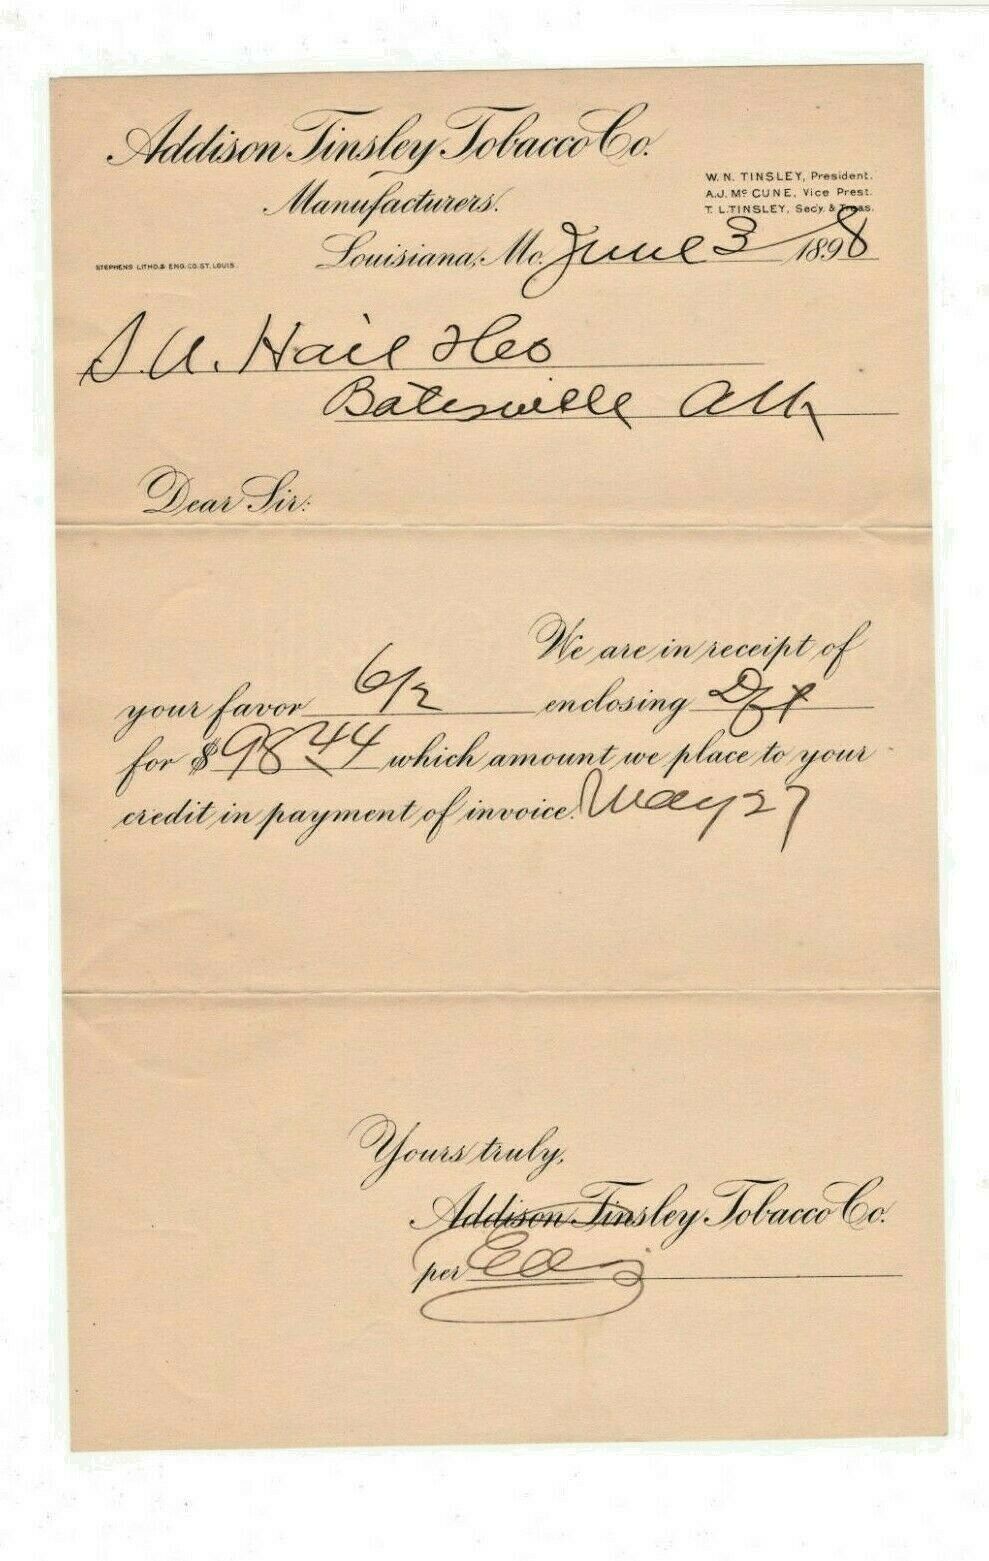 Addison Tinsley Tobacco Co.
Manufacturers.
W. N. TINSLEY, President.
A.J. Mc CUNE, Vice Prest.
T. L. TINSLEY, Sec'y. & Treas.
STEPHENS LITHO. & ENG. CO. ST. LOUIS.
Louisiana, Mo. June 3 1898
S. A. Hail
Batesville Ark
Dear Sir:
We are in receipt of
your favor 6/2 enclosing Dft
for $ 98 44 which amount we place to your
credit in payment of invoice. May 27
Yours truly,
Addison Tinsley Tobacco Co.
per